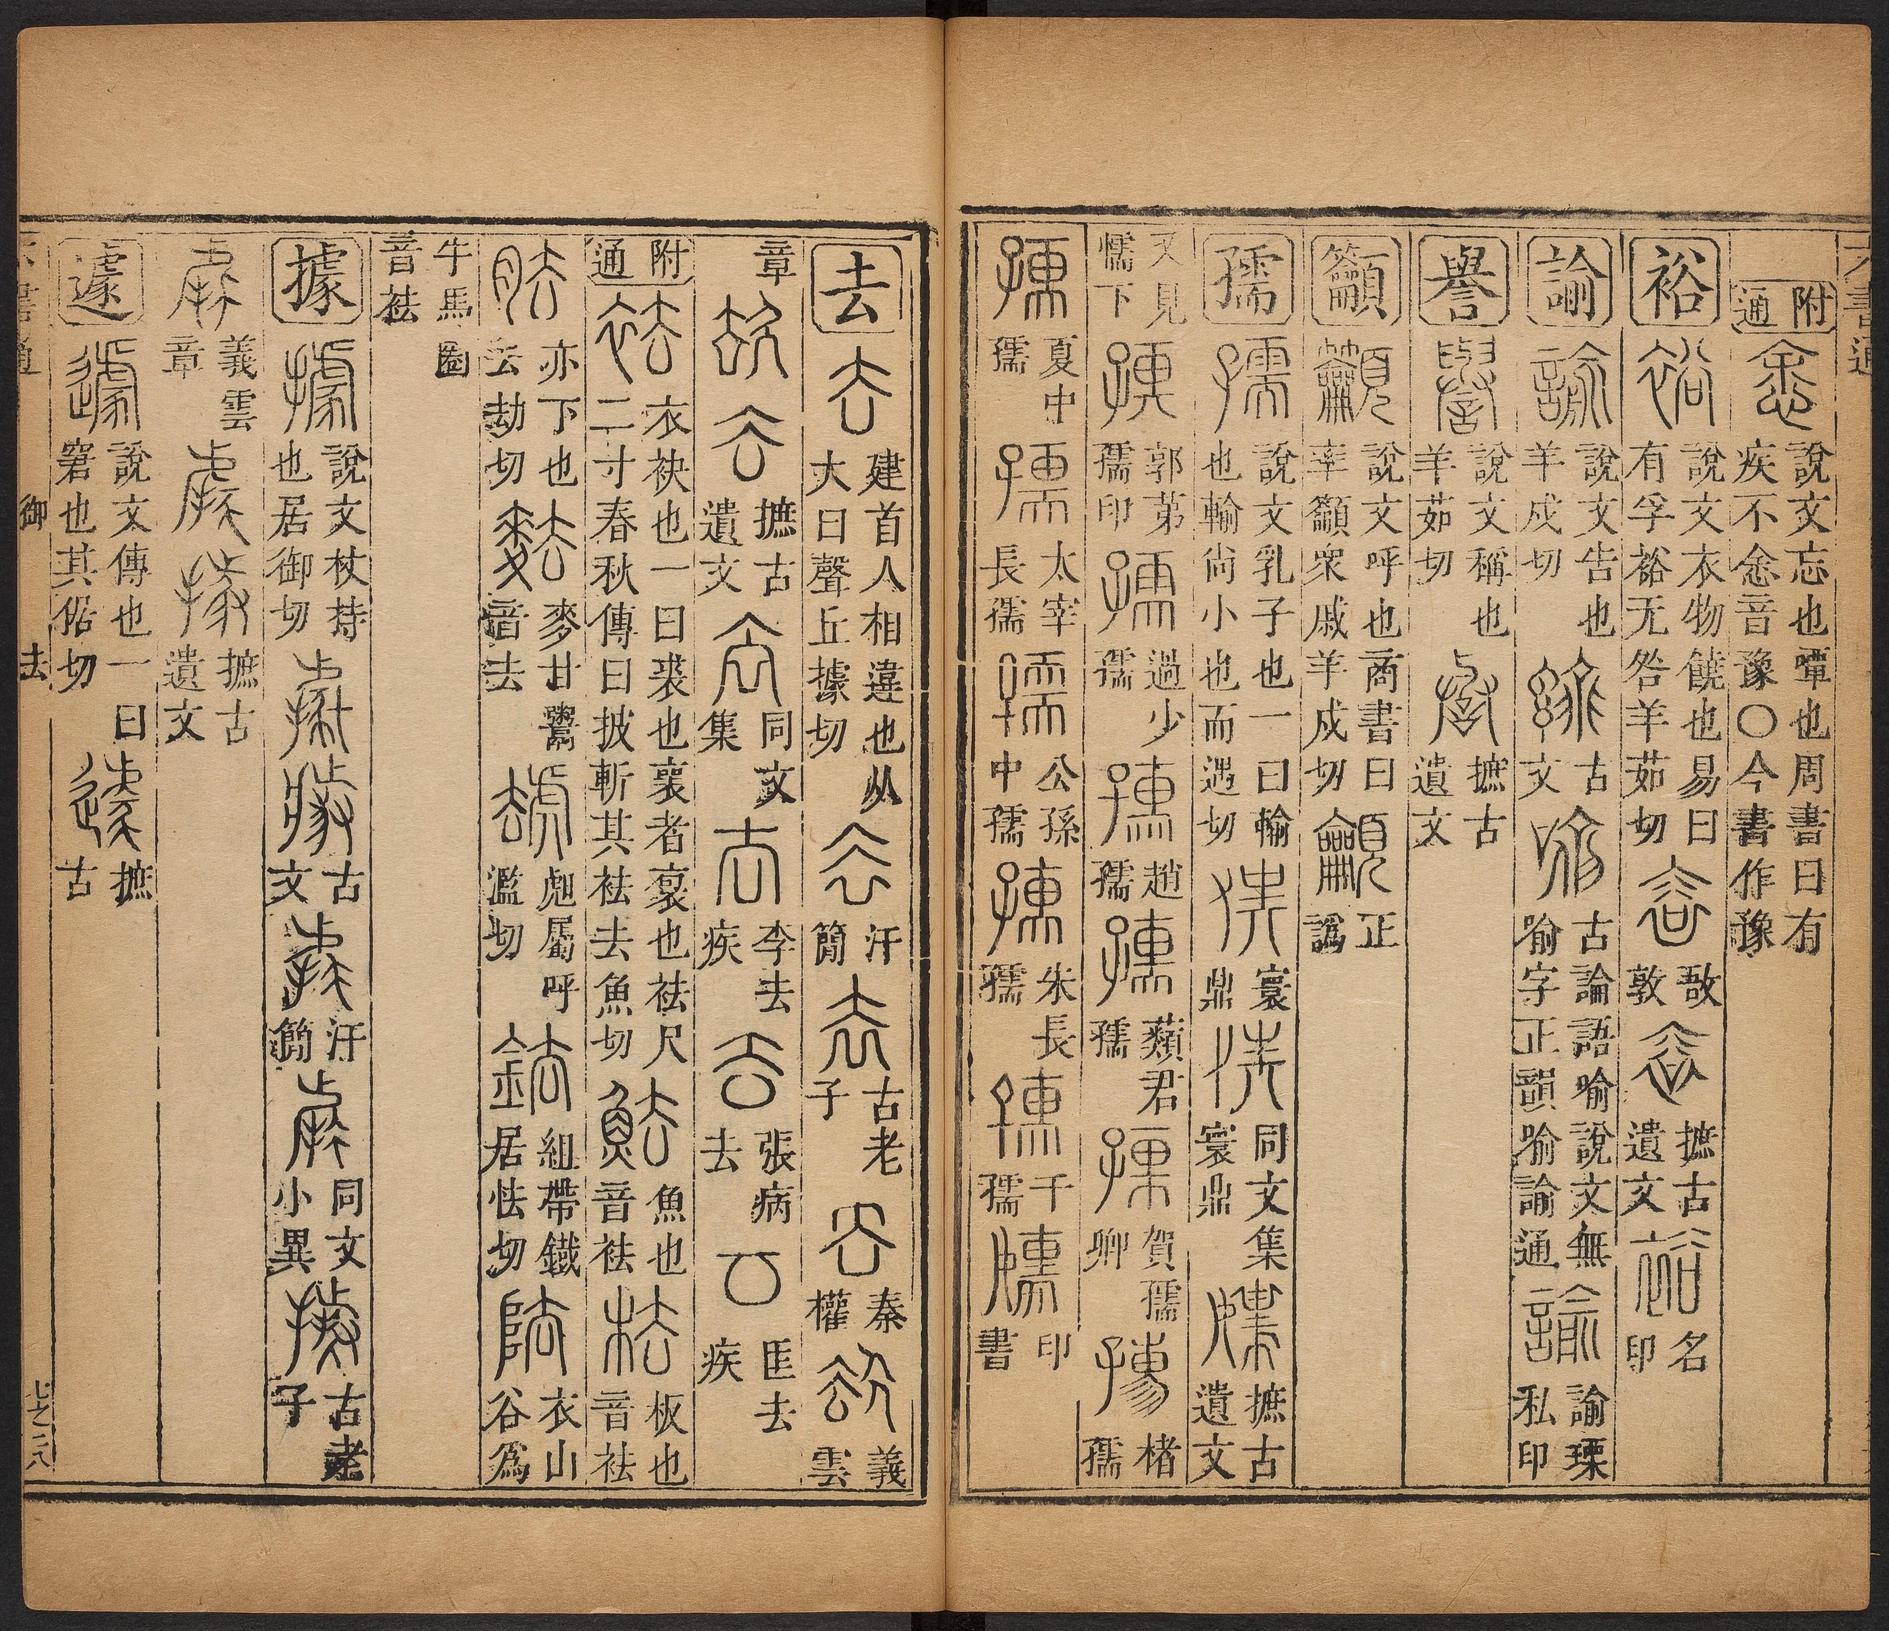 附通
說文忘也嘾也周書曰有
疾不悆悆音豫〇今書作豫
裕
說文衣物饒也易曰
有孚裕无咎羊茹切
敦
摭古
遺文
名
印
諭
說文告也
羊戍切
古
文
古論語喻說文無
喻字正韻喻諭通
諭瑮
私印
譽
說文稱也
羊茹切
摭古
遺文
籲
說文呼也商書曰
率籲眾戚羊戍切
正
譌
孺
說文乳子也一曰輸
也輸尙小也而遇切
寰
鼎
同文集
寰鼎
摭古
遺文
又見
懦下
郭第
孺印
過少
孺
趙
孺
蘱君
孺
賀孺
卿
楮
孺
夏中
孺
太宰
長孺
公孫
中孺
朱長
孺
千
孺
印
書
去
建首人相違也从
大曰聲丘據切
汗
簡
古老
子
秦
權
義
雲
章
摭古
遺文
同文
集
李去
疾
張病
去
匡去
疾
附通
衣袂也一曰裘也褱者裦也袪尺
二寸春秋傳曰披斬其袪去魚切
魚也
音袪
板也
音袪
亦下也
去劫切
麥甘鬻
音去
屬呼
濫切
組帶鐵
居怯切
衣山
谷爲
牛馬圈
音袪
據
說文杖持
也居御切
古
文
汗
簡
同文
小異
古老
子
義雲
章
摭古
遺文
遽
說文傳也一曰
窘也其倨切
摭
古
御 去
七之二八